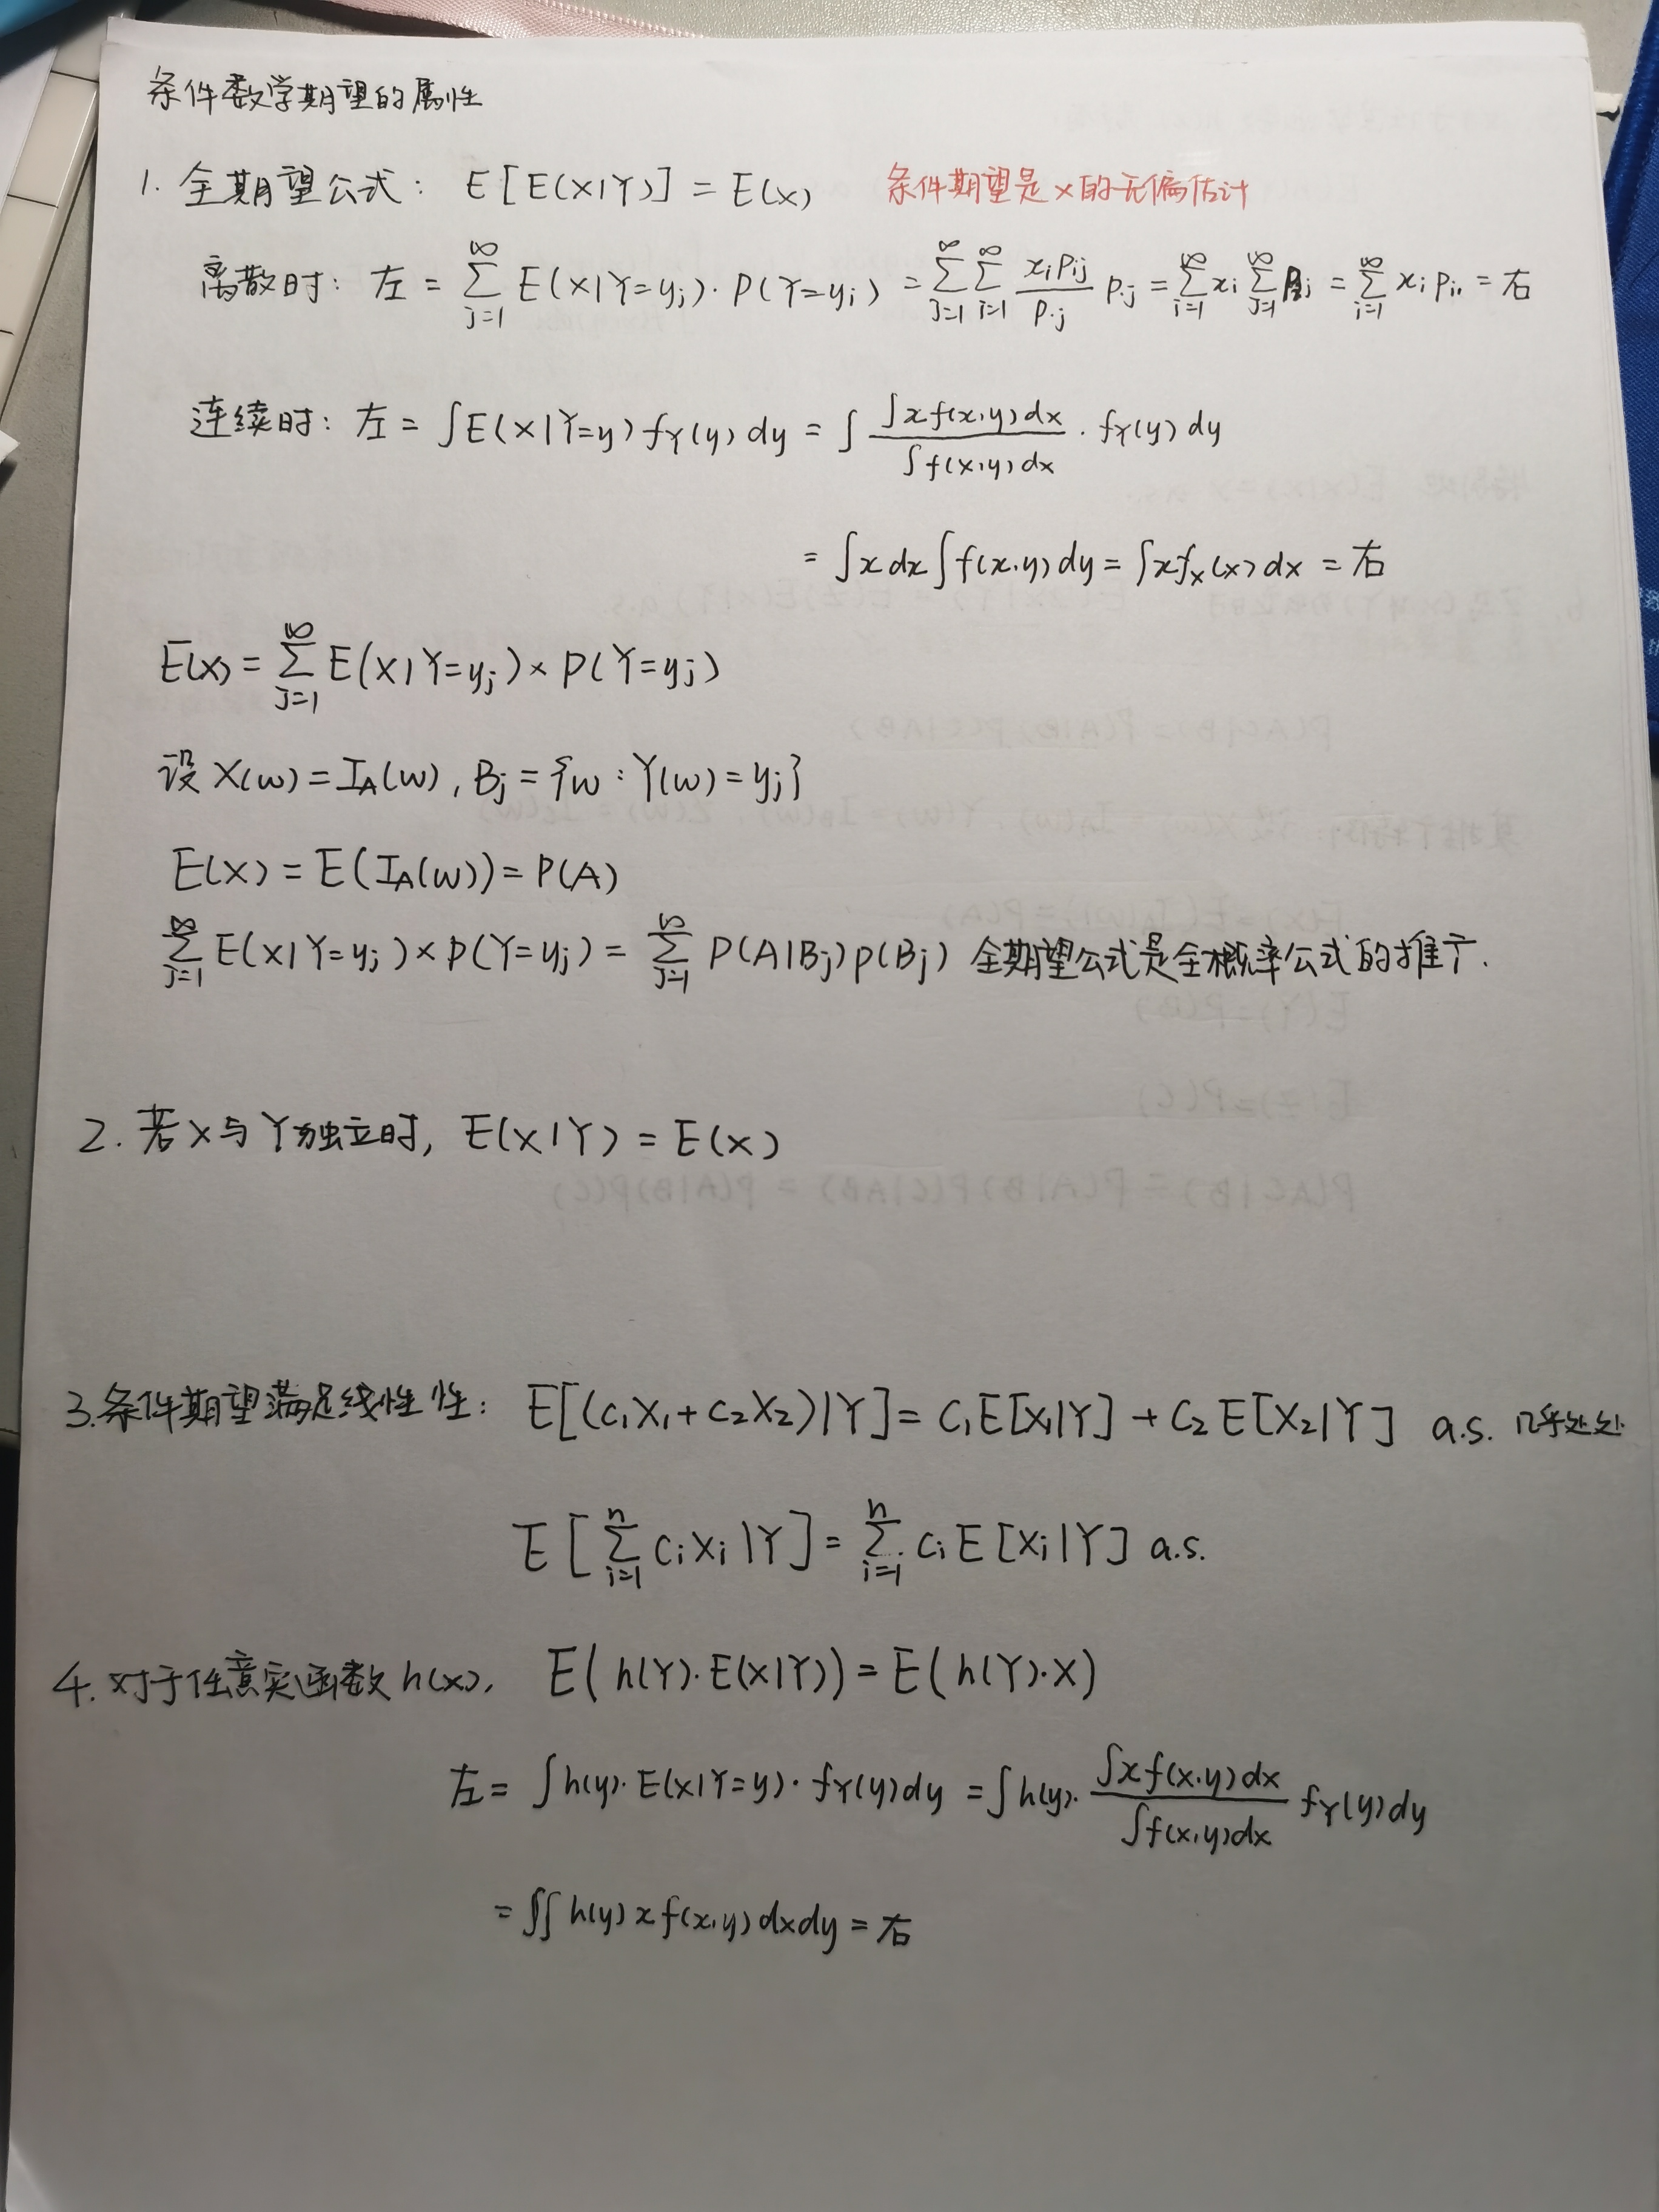 条件数学期望的属性
1. 全期望公式: E[E(X|Y)] = E(X) 条件期望是X的无偏估计
离散时: 左 = ∑_{j=1}^{∞} E(X|Y=y_j)·P(Y=y_j) = ∑_{j=1}^{∞} ∑_{i=1}^{∞} \frac{x_i p_{ij}}{p_{·j}} p_{·j} = ∑_{i=1}^{∞} x_i ∑_{j=1}^{∞} p_{ij} = ∑_{i=1}^{∞} x_i p_{i·} = 右
连续时: 左 = ∫E(X|Y=y) f_Y(y) dy = ∫ \frac{∫x f(x,y) dx}{∫f(x,y) dx} · f_Y(y) dy
= ∫x dx ∫f(x,y) dy = ∫x f_X(x) dx = 右
E(X) = ∑_{j=1}^{∞} E(X|Y=y_j) × P(Y=y_j)
设 X(w) = I_A(w), B_j = {w : Y(w) = y_j}
E(X) = E(I_A(w)) = P(A)
∑_{j=1}^{∞} E(X|Y=y_j) × P(Y=y_j) = ∑_{j=1}^{∞} P(A|B_j)P(B_j) 全期望公式是全概率公式的推广.
2. 若X与Y独立时, E(X|Y) = E(X)
3. 条件期望满足线性性: E[(c_1X_1+c_2X_2)|Y] = c_1E[X_1|Y] + c_2E[X_2|Y] a.s. 几乎处处
E[∑_{i=1}^{n} c_i X_i |Y] = ∑_{i=1}^{n} c_i E[X_i|Y] a.s.
4. 对于任意实函数h(x), E(h(Y)·E(X|Y)) = E(h(Y)·X)
左 = ∫h(y)·E(X|Y=y)·f_Y(y)dy = ∫h(y)·\frac{∫x f(x,y)dx}{∫f(x,y)dx} f_Y(y)dy
= ∬ h(y) x f(x,y) dxdy = 右